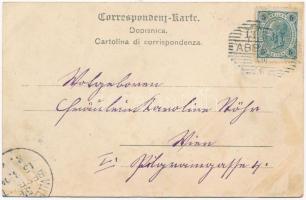 Correspondenz-Karte.
Dopisnica.
Cartolina di corrispondenza.
ABB
Wolgeboren
Fräulein Karoline Röhr
Wien
Pilgramgasse 4.